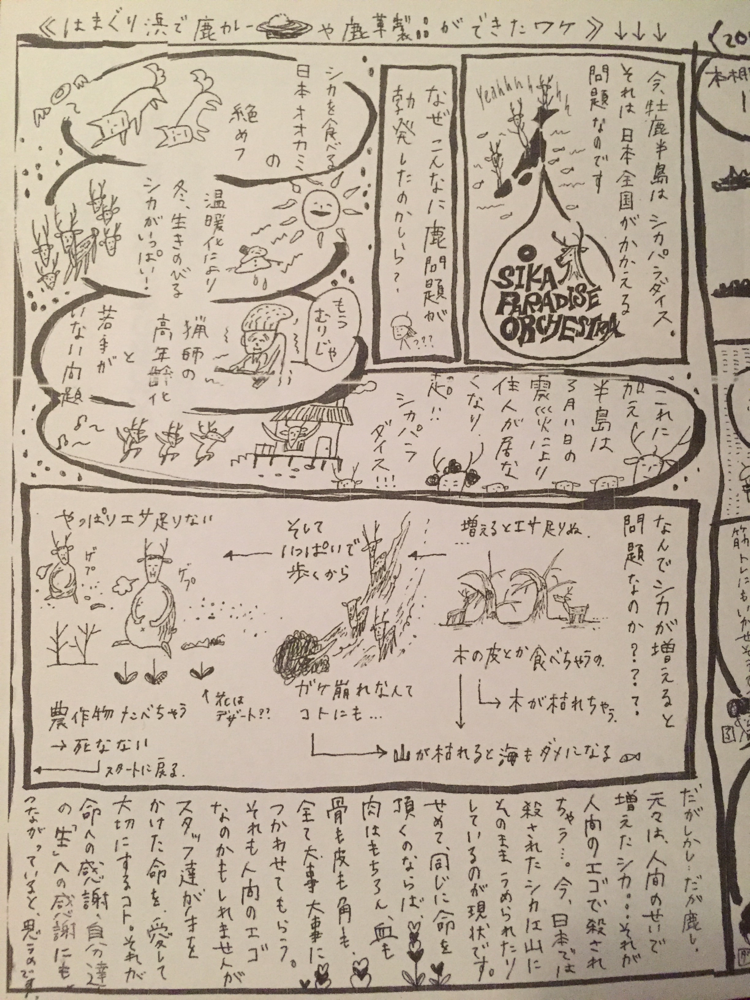 ≪はまぐり浜で鹿カレーや鹿革製品ができたワケ≫↓↓↓
今、牡鹿半島はシカパラダイス。
それは日本全国がかかえる
問題なのです
Yeahhhhhh
SIKA
PARADISE
ORCHESTRA
なぜこんなに鹿問題が
勃発したのかしら?
???
シカを食べる
日本オオカミ
の
絶めつ
温暖化により
冬、生きのびる
シカがいっぱい!
もう
むりじゃ
猟師の
高年齢化
と
若手が
いない問題
これに
加え
半島は
3月11日の
震災により
住人が居な
くなり、
シカパラ
ダイス!!!
なんでシカが増えると
問題なのか????
増えるとエサ足りぬ。
木の皮とか食べちゃうの。
→木が枯れちゃう。
そして
いっぱいで
歩くから
ガケ崩れなんて
コトにも…
→山が枯れると海もダメになる
やっぱりエサ足りない
ゲプ
ゲプ
↑花は
デザート??
農作物たべちゃう
→死なない
スタートに戻る。
だがしかし…だが鹿し、
元々は、人間のせいで
増えたシカ。。。それが
人間のエゴで殺され
ちゃう…。今、日本では
殺されたシカは山に
そのままうめられたり
しているのが現状です。
せめて、同じに命を
頂くのならば、
肉はもちろん、血も
骨も皮も角も、
全て大事大事に
つかわせてもらう。
それも人間のエゴ
なのかもしれませんが
スタッフ達が手を
かけた命を、愛して
大切にするコト。それが
命への感謝、自分達
の「生」への感謝にも
つながっていると思うのです。